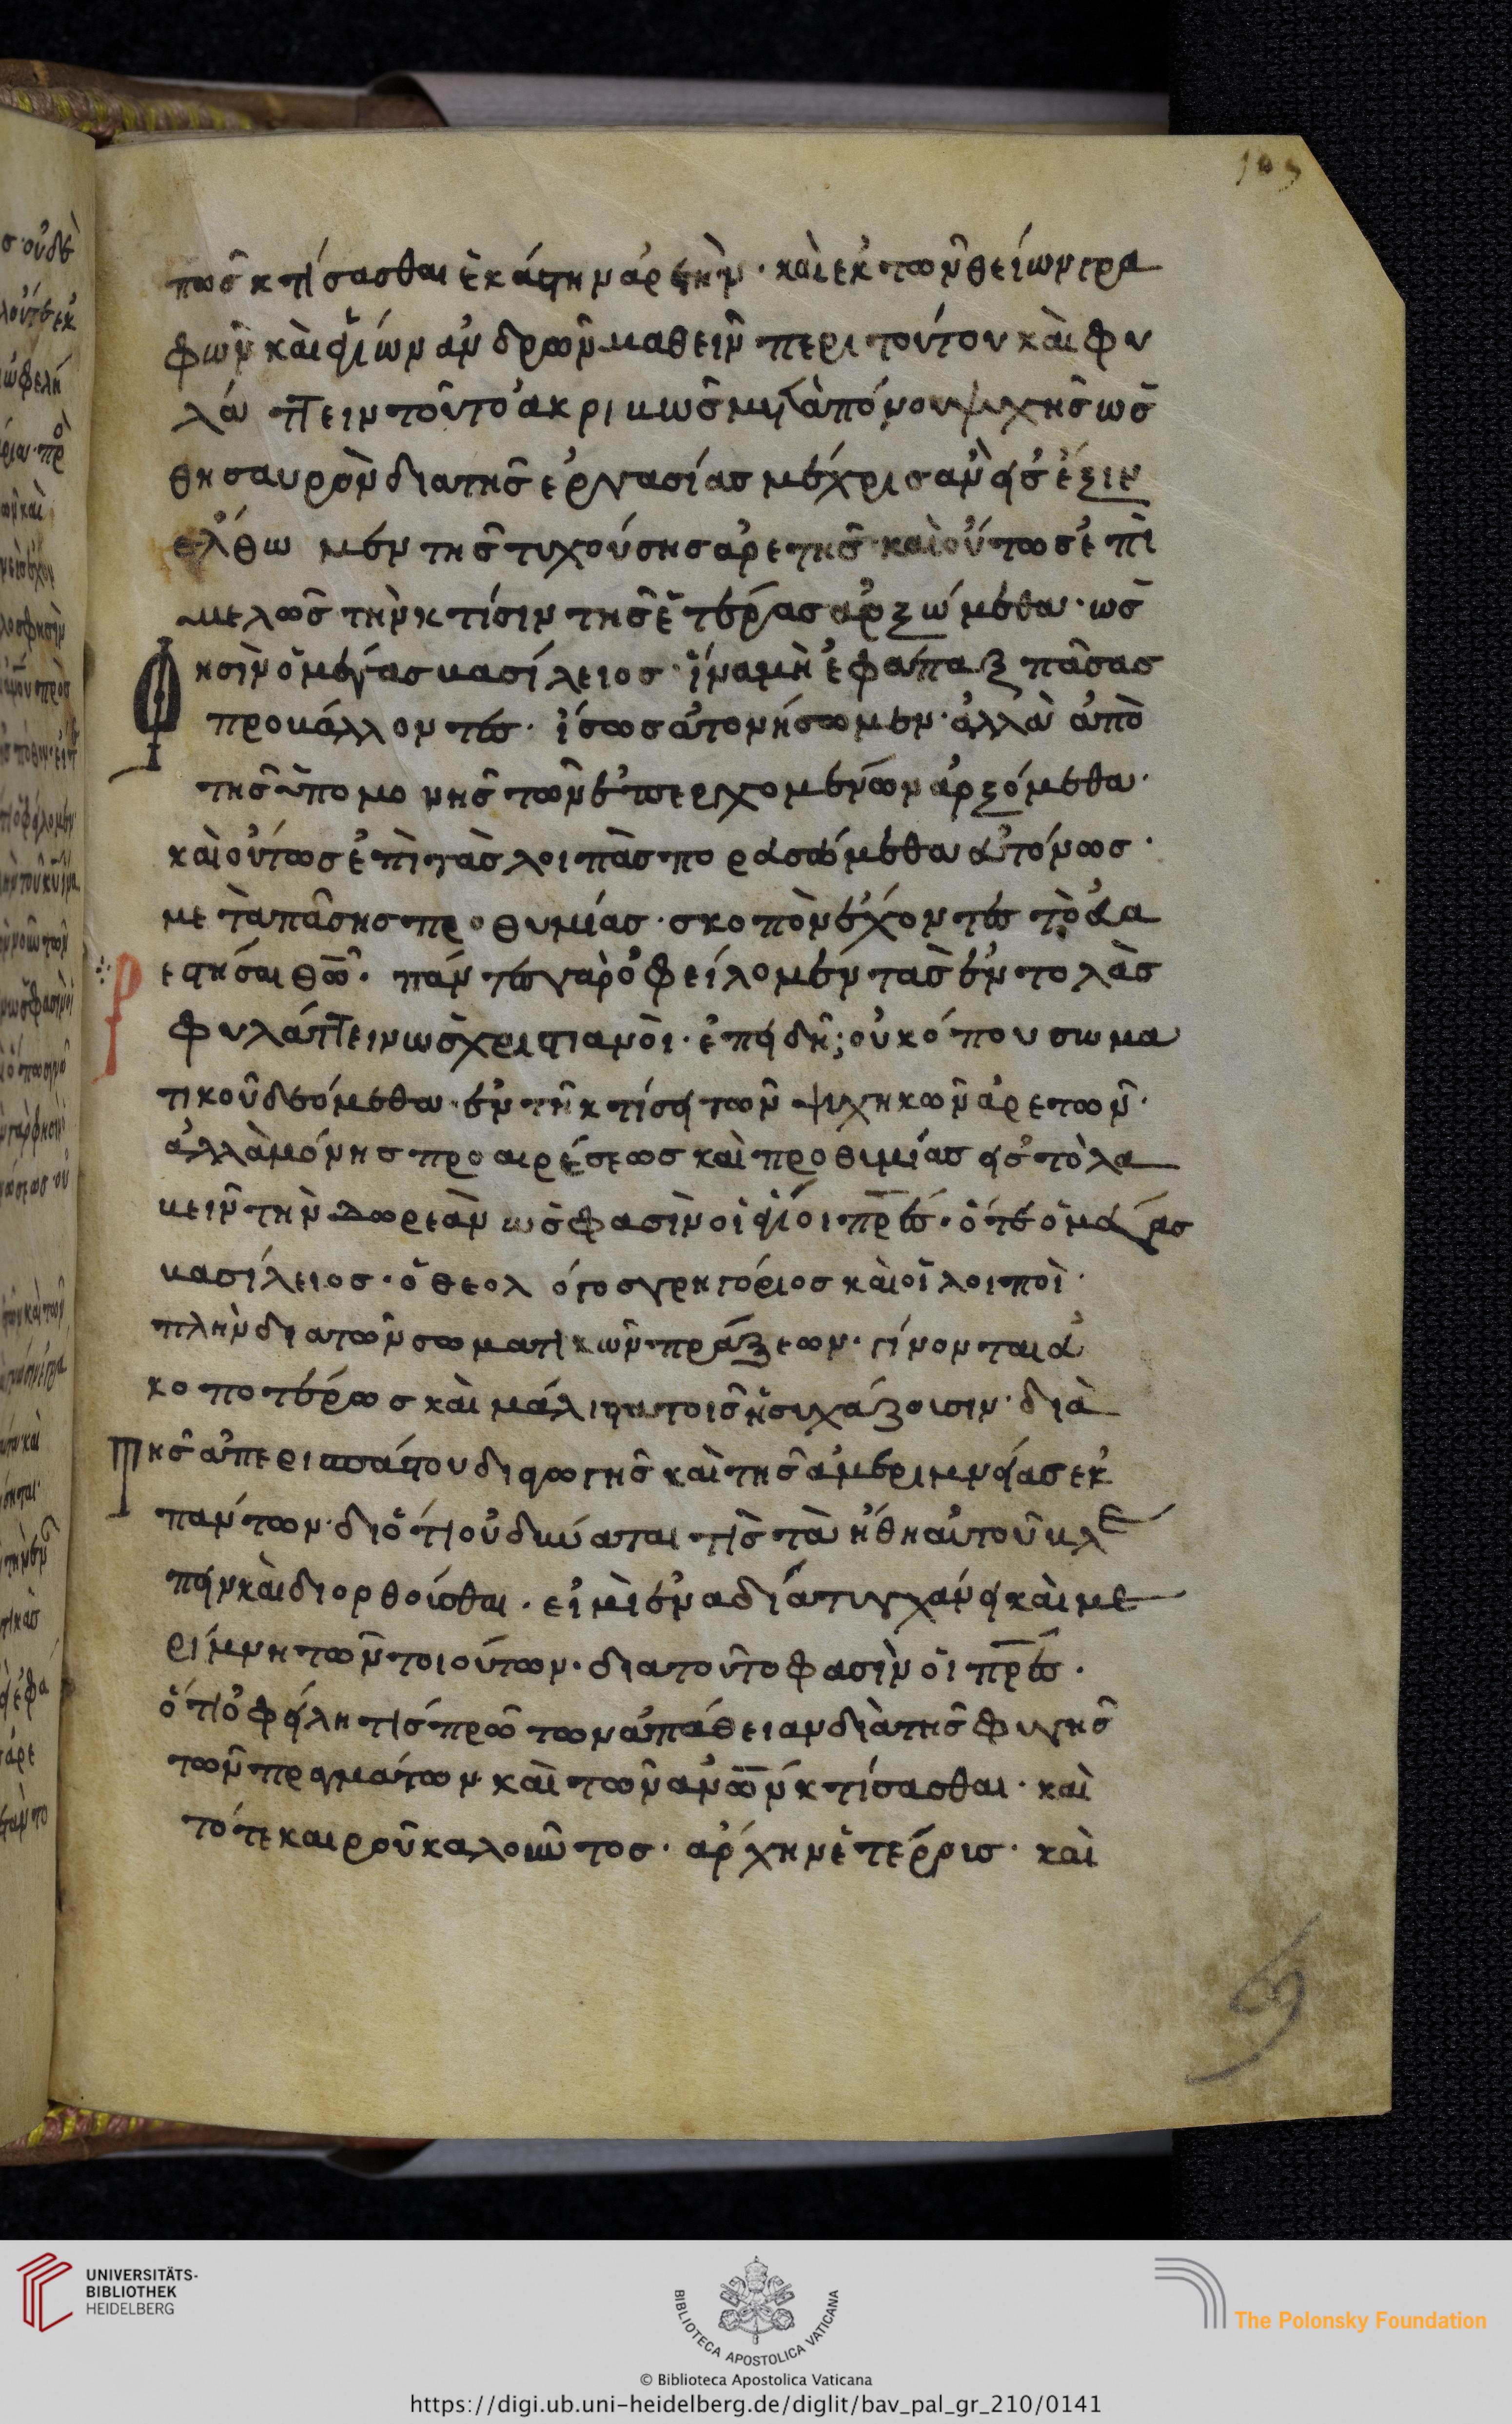 πῶς κτίσασθαι ἑκάστην ἀρετὴν· καὶ ἐκ τῶν θείων γρα
φῶν καὶ ἁγίων ἀνδρῶν μαθεῖν περὶ τούτου καὶ φυ
λάττειν τοῦτο ἀκριβῶς μετὰ πόνου ψυχῆς ὡς
θησαυρὸν διὰ τῆς ἐργασίας μέχρις ἂν εἰς ἕξιν
ἔλθωμεν τῆς τυχούσης ἀρετῆς· καὶ οὕτως ἐπι
μελῶς τὴν κτίσιν τῆς ἑτέρας ἀρξώμεθα· ὡς
Φησὶν ὁ μέγας βασίλειος· ἵνα μὴ ἐφάπαξ πάσας
προβάλλοντες· ἴσως ἀτονήσωμεν· ἀλλὰ ἀπὸ
τῆς ὑπομονῆς τῶν ἐπερχομένων ἀρξόμεθα·
καὶ οὕτως ἐπὶ τὰς λοιπὰς πορευσώμεθα εὐτόνως·
μετὰ πάσης προθυμίας· σκοπὸν ἔχοντες τὸ εὐα
ρεστῆσαι θῶ· πάντες γὰρ ὀφείλομεν τὰς ἐντολὰς
φυλάττειν ὡς χριστιανοὶ· ἐπειδὴ οὐ κόπου σωμα
τικοῦ δεόμεθα· ἐν τῆ κτίσει τῶν ψυχηκῶν ἀρετῶν·
ἀλλὰ μόνης προαιρέσεως καὶ προθιμίας εἰς τὸ λα
βεῖν τὴν δωρεὰν ὡς φασὶν οἱ ἅγιοι πρες· ὅτε ὁ μέγας
βασίλειος· ὁ θεολόγος γρηγόριος καὶ οἱ λοιποὶ·
πλὴν διὰ τῶν σωματικῶν πράξεων· γίνονται εὐ
κοποτέρως καὶ μάλιστα τοῖς ἡσιχάζουσιν· διὰ
Τῆς ἀπερισπάστου διαγωγῆς καὶ τῆς ἀμεριμνείας ἐκ
πάντων· διότι οὐ δύναται τὶς τὰ ἤθη αὐτοῦ βλέ
πειν καὶ διορθοῦσθαι· εἰ μὶ ἐν ἀδεία τυγχάνει καὶ με
ρίμνη τῶν τοιούτων· διὰ τοῦτο φασὶν οἱ πρες·
ὅτι ὀφείλη τίς πρῶτων ἀπάθειαν διὰ τῆς φυγῆς
τῶν πραγμάτων καὶ τῶν ἀνων κτίσασθαι· καὶ
τότε καιροῦ καλοῦντος· ἄρχην ἑτέροις· καὶ
UNIVERSITÄTS-
BIBLIOTHEK
HEIDELBERG
BIBLIOTECA APOSTOLICA VATICANA
The Polonsky Foundation
© Biblioteca Apostolica Vaticana
https://digi.ub.uni-heidelberg.de/diglit/bav_pal_gr_210/0141